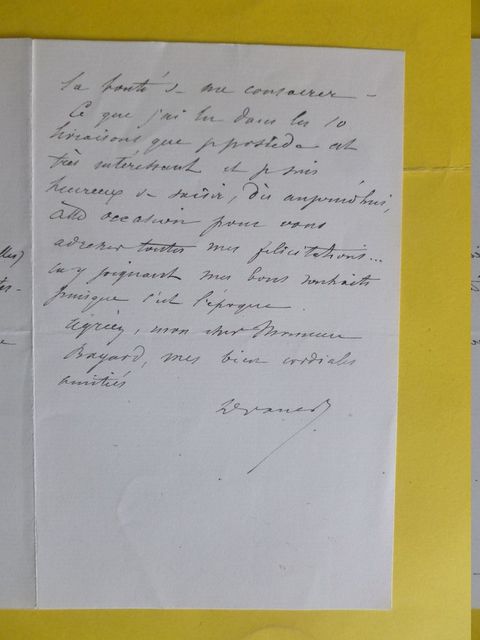 la bonté de me conserver –
Ce que j'ai lu dans les 10
livraisons que je possède est
très intéressant et je suis
heureux de saisir, dès aujourd'hui,
cette occasion pour vous
adresser toutes mes félicitations...
en y joignant mes bons souhaits
puisque c'est l'époque.
Agréez, mon cher Monsieur
Bayard, mes bien cordiales
amitiés